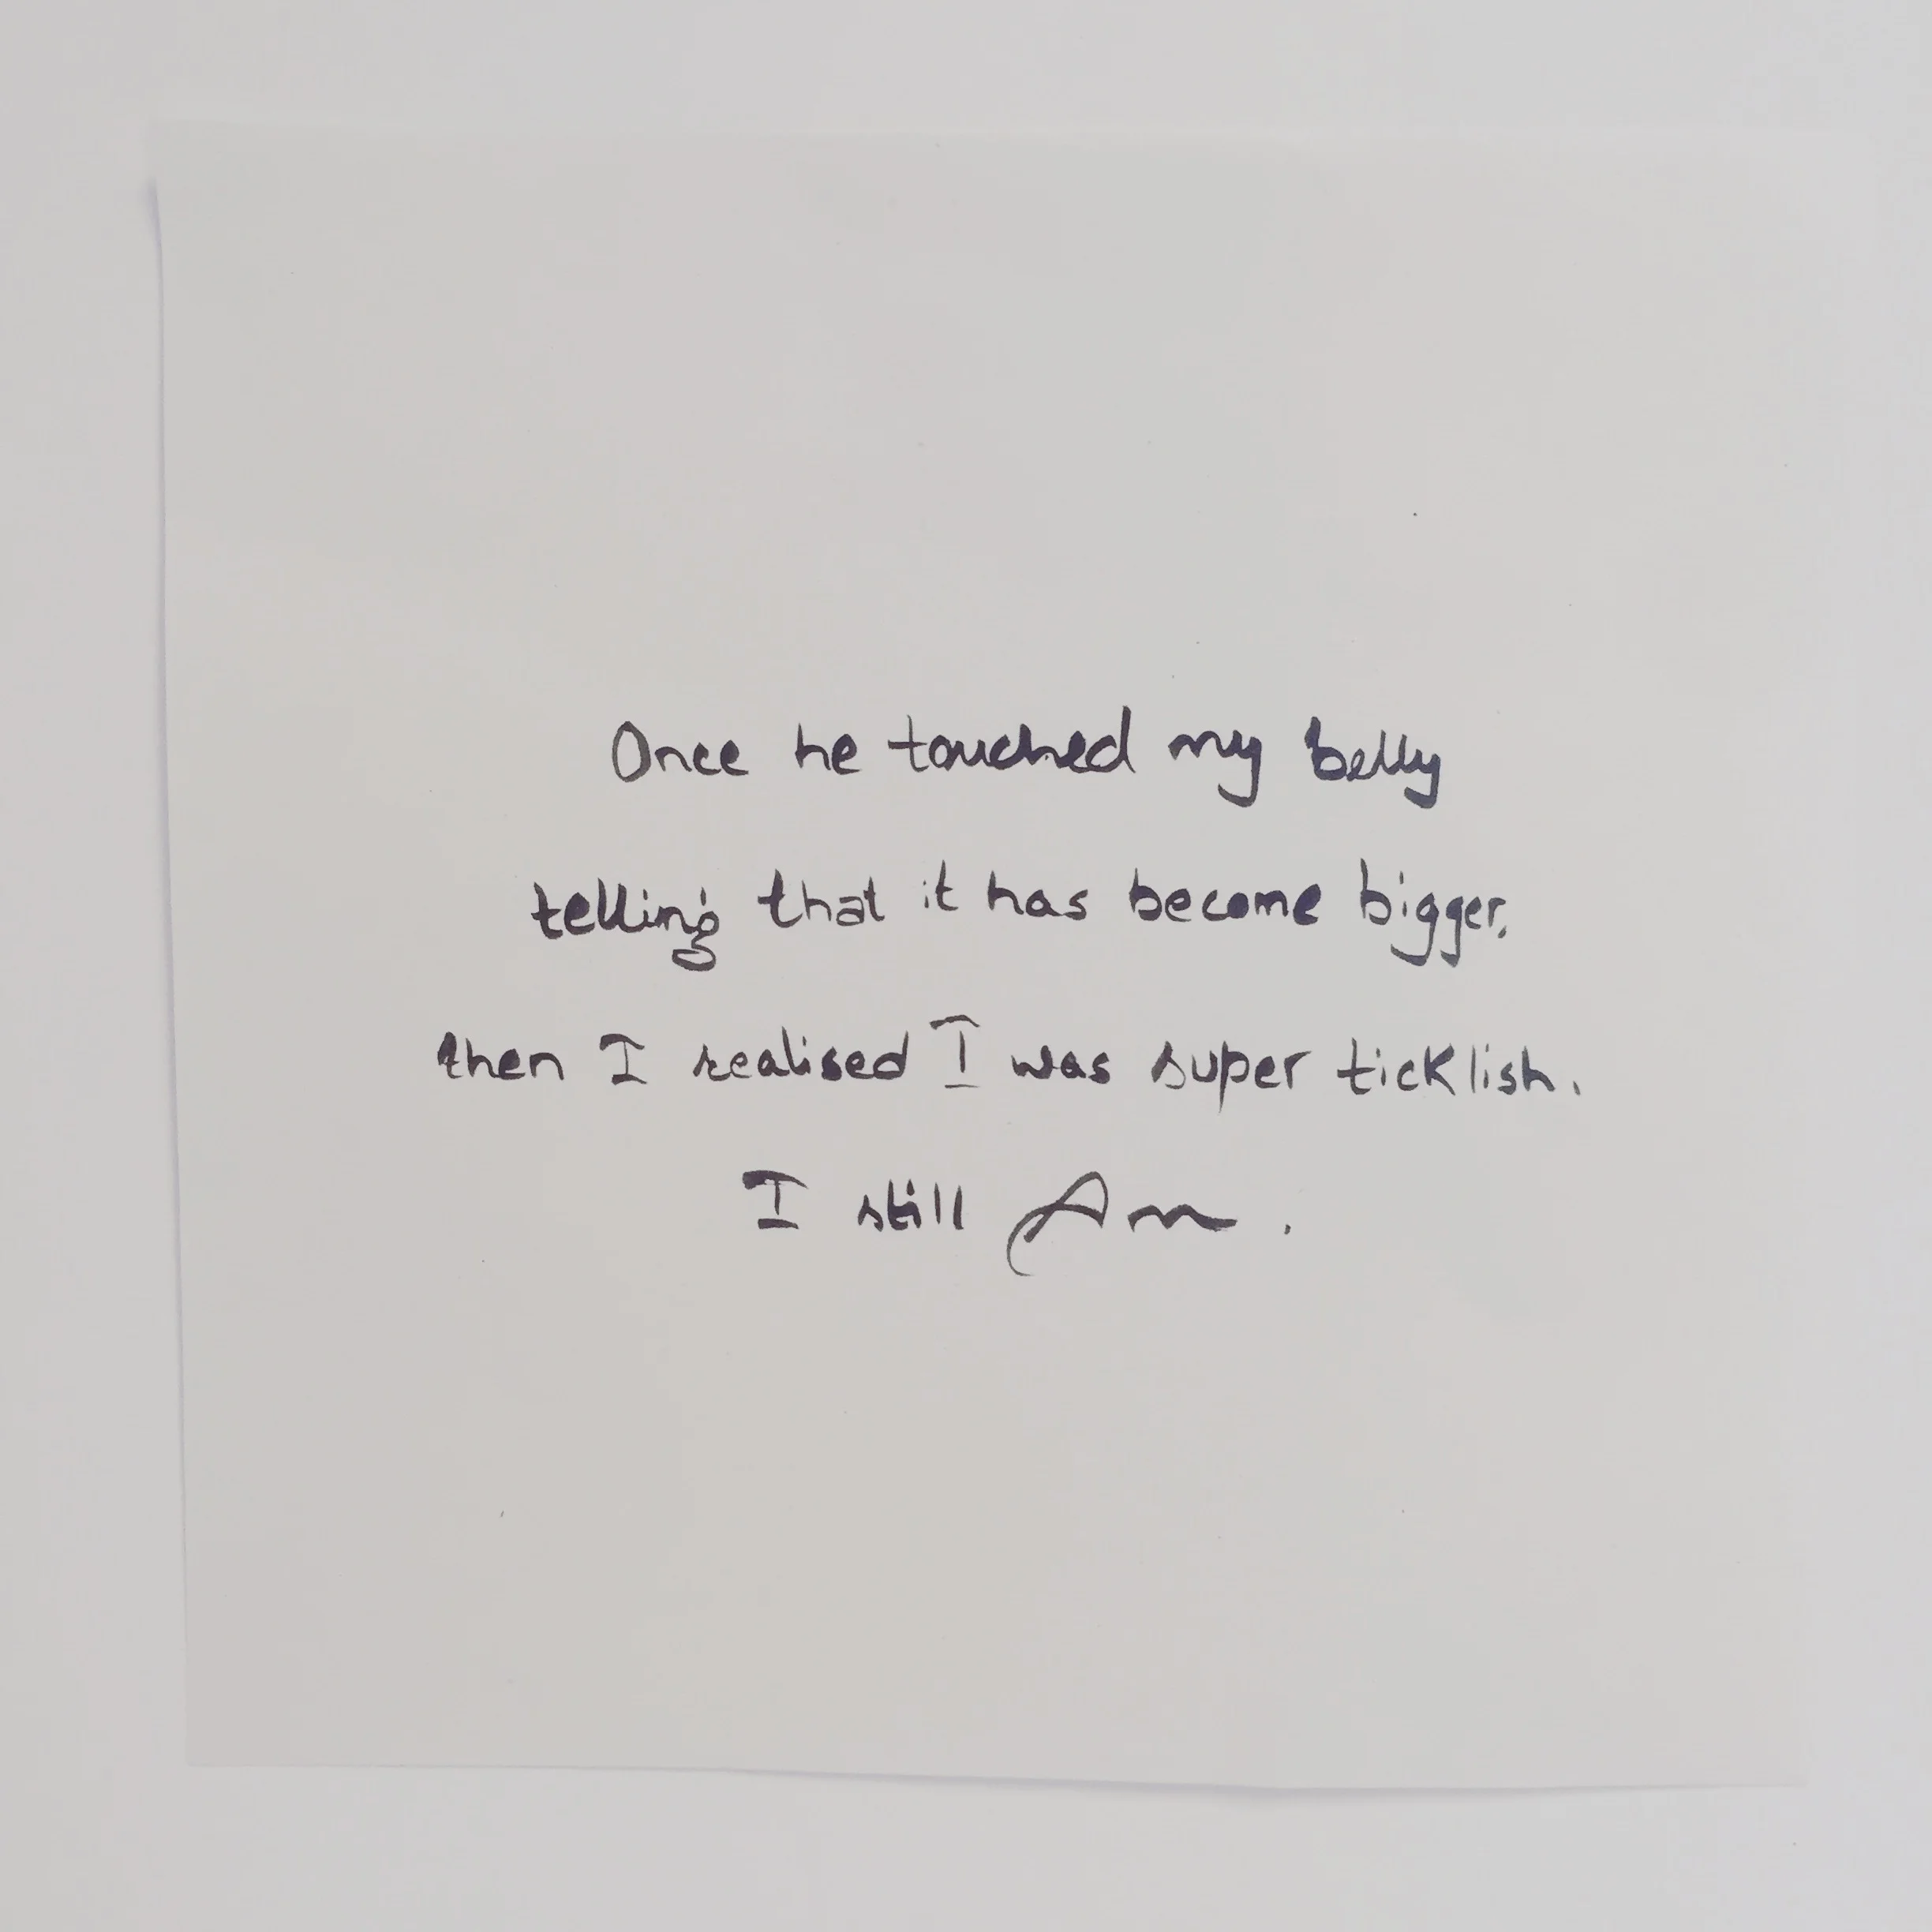 Once he touched my belly
telling that it has become bigger,
then I realised I was super ticklish.
I still Am.